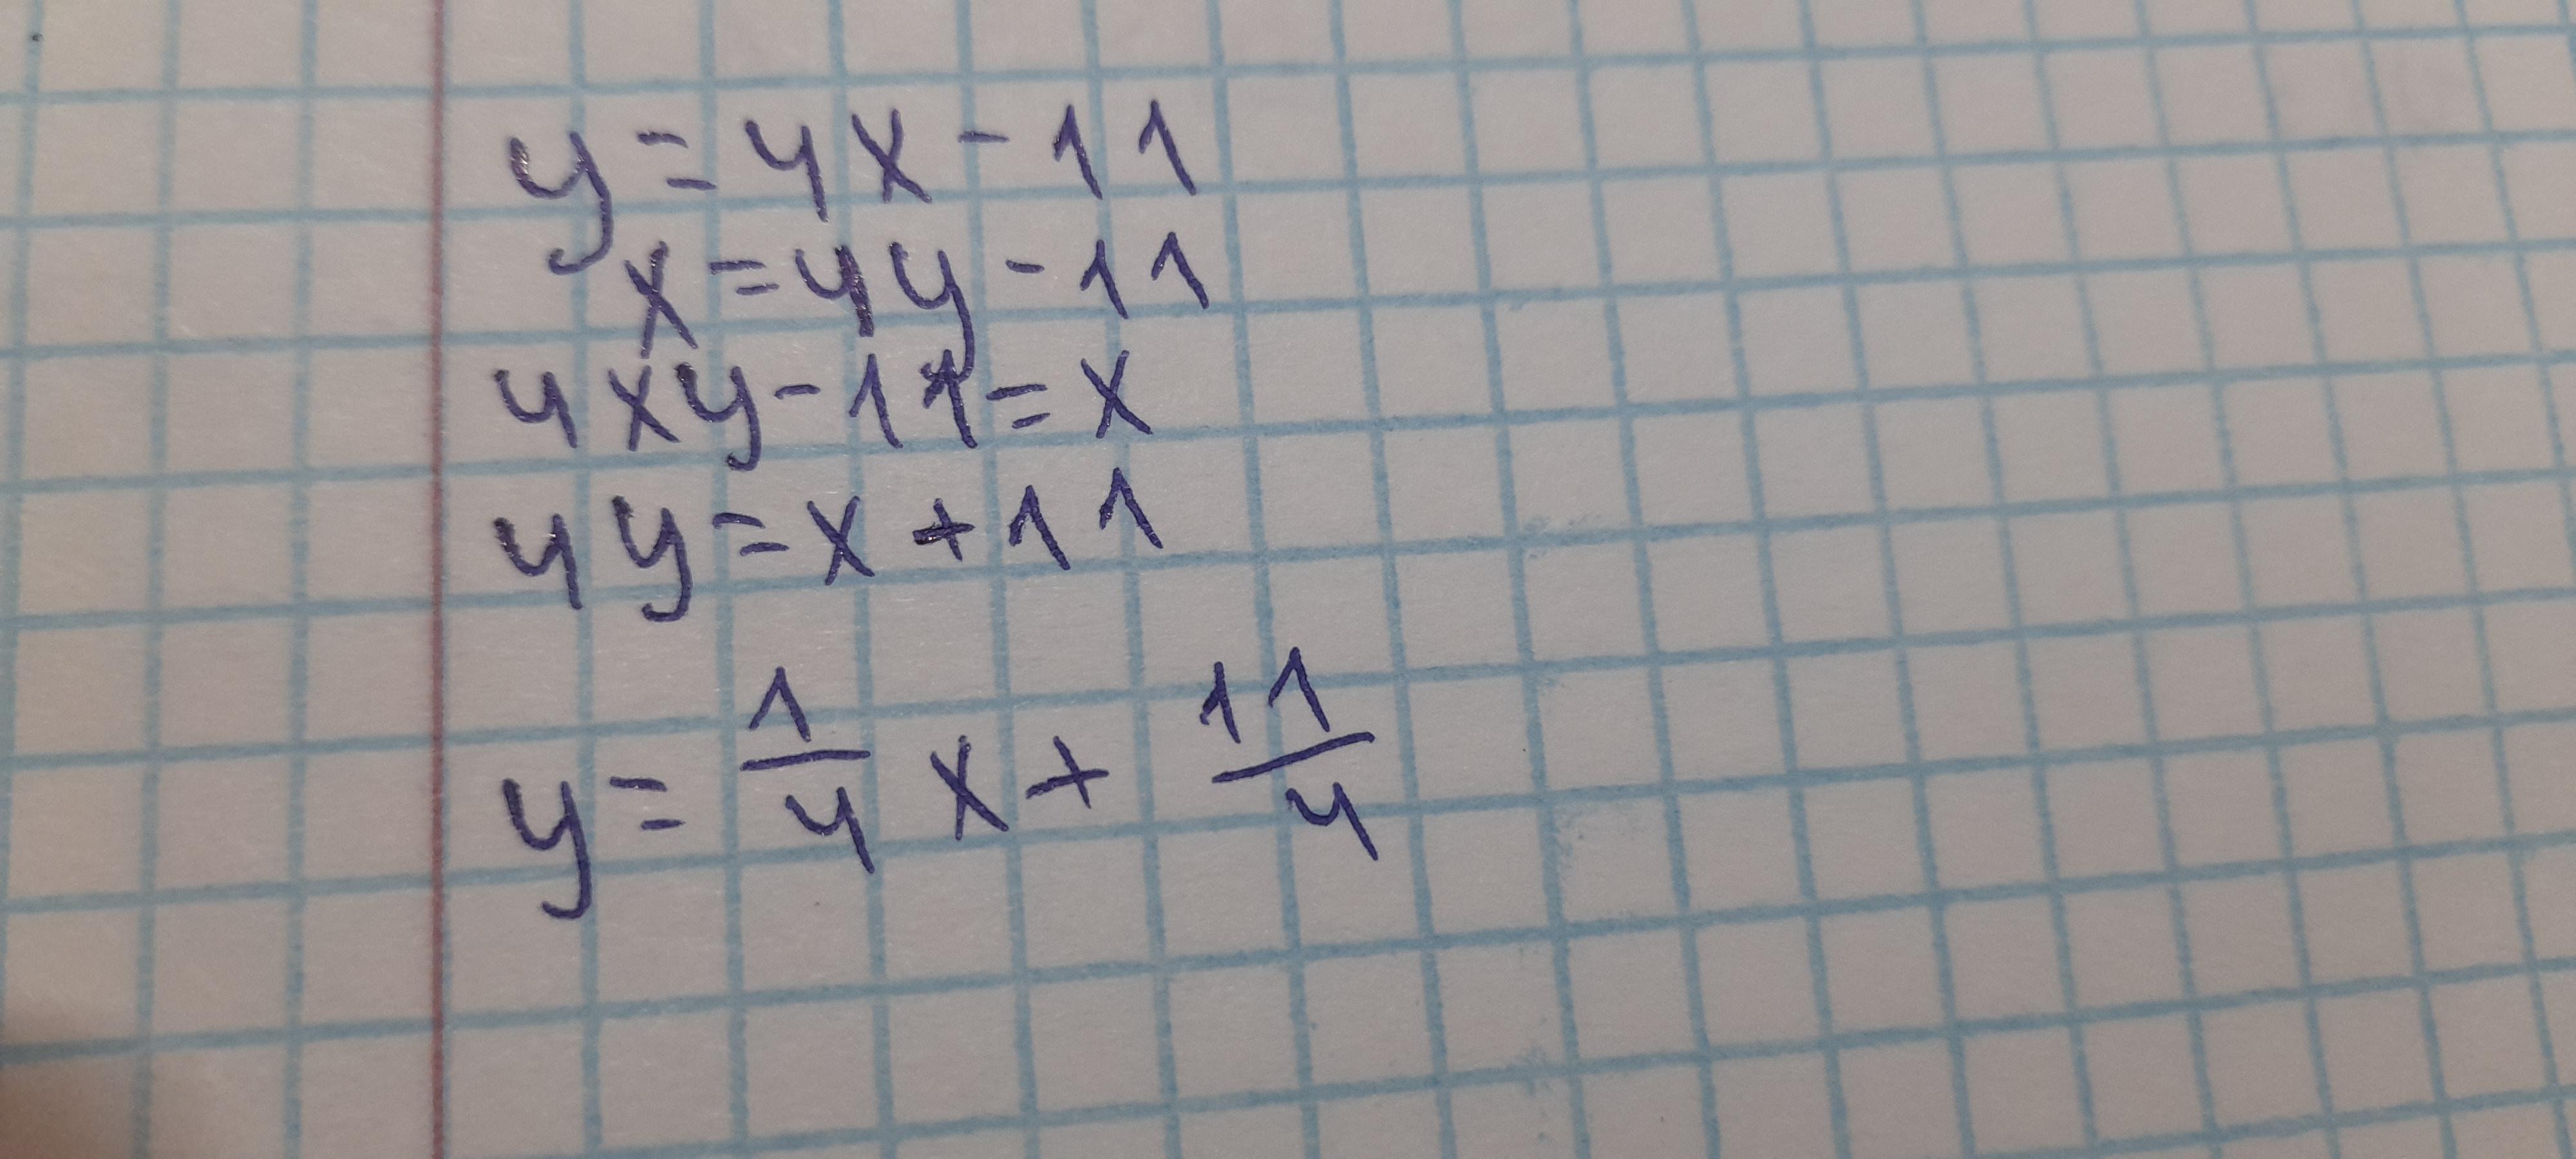 y = 4x - 11
x = 4y - 11
4xy - 11 = x
4y = x + 11
y = 1/4 x + 11/4